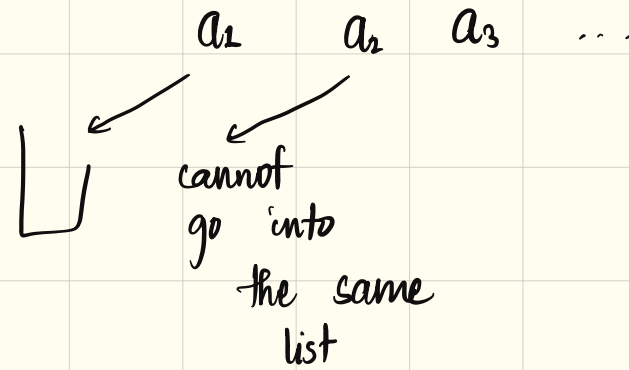 a₁ a₂ a₃ ...
cannot
go into
the same
list